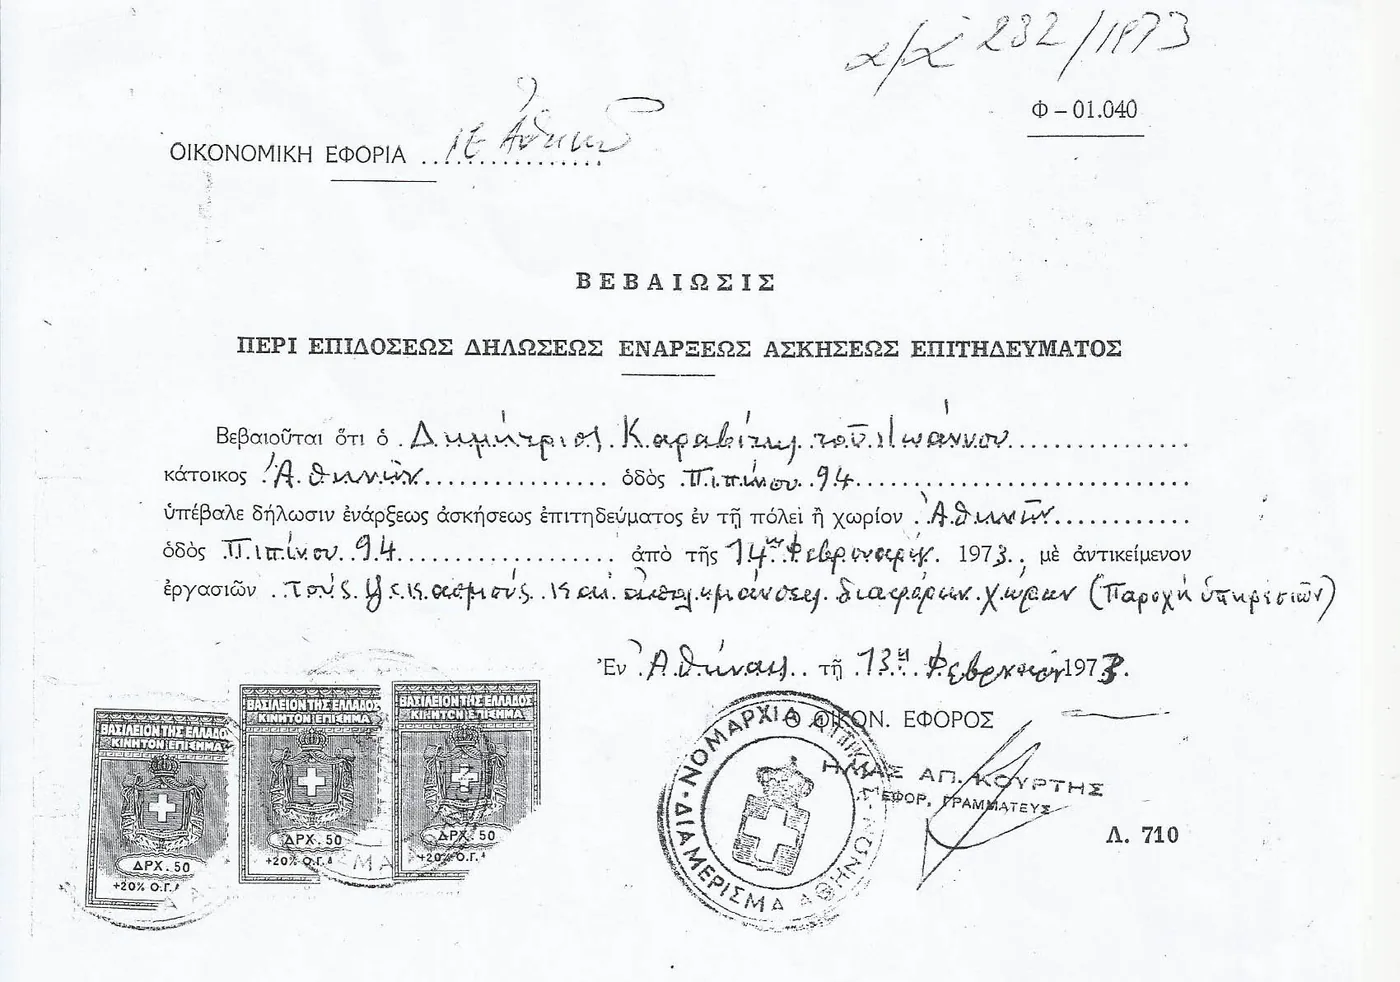 α/α 232/1973
Φ – 01.040
ΟΙΚΟΝΟΜΙΚΗ ΕΦΟΡΙΑ ΙΕ Ἀθηνῶν
ΒΕΒΑΙΩΣΙΣ
ΠΕΡΙ ΕΠΙΔΟΣΕΩΣ ΔΗΛΩΣΕΩΣ ΕΝΑΡΞΕΩΣ ΑΣΚΗΣΕΩΣ ΕΠΙΤΗΔΕΥΜΑΤΟΣ
Βεβαιοῦται ὅτι ὁ Δημήτριος Καραβίτης τοῦ Ἰωάννου
κάτοικος Ἀθηνῶν ὁδὸς Πιπίνου 94
ὑπέβαλε δήλωσιν ἐνάρξεως ἀσκήσεως ἐπιτηδεύματος ἐν τῇ πόλει ἢ χωρίον Ἀθηνῶν
ὁδὸς Πιπίνου 94 ἀπὸ τῆς 14ης Φεβρουαρίου 1973, μὲ ἀντικείμενον
ἐργασιῶν τοὺς ψεκασμούς καὶ ἀπολυμάνσεις διαφόρων χώρων (Παροχὴ ὑπηρεσιῶν)
Ἐν Ἀθήναις τῇ 13ῃ Φεβρουαρίου 1973.
Ο ΟΙΚΟΝ. ΕΦΟΡΟΣ
ΗΛΙΑΣ ΑΠ. ΚΟΥΡΤΗΣ
ΕΦΟΡ. ΓΡΑΜΜΑΤΕΥΣ
Λ. 710
ΝΟΜΑΡΧΙΑ ΑΤΤΙΚΗΣ
ΔΙΑΜΕΡΙΣΜΑ ΑΘΗΝΩΝ
ΒΑΣΙΛΕΙΟΝ ΤΗΣ ΕΛΛΑΔΟΣ
ΚΙΝΗΤΟΝ ΕΠΙΣΗΜΑ
ΔΡΧ. 50
+20% Ο.Γ.Α
ΒΑΣΙΛΕΙΟΝ ΤΗΣ ΕΛΛΑΔΟΣ
ΚΙΝΗΤΟΝ ΕΠΙΣΗΜΑ
ΔΡΧ. 50
+20% Ο.Γ.Α
ΒΑΣΙΛΕΙΟΝ ΤΗΣ ΕΛΛΑΔΟΣ
ΚΙΝΗΤΟΝ ΕΠΙΣΗΜΑ
ΔΡΧ. 50
+20% Ο.Γ.Α